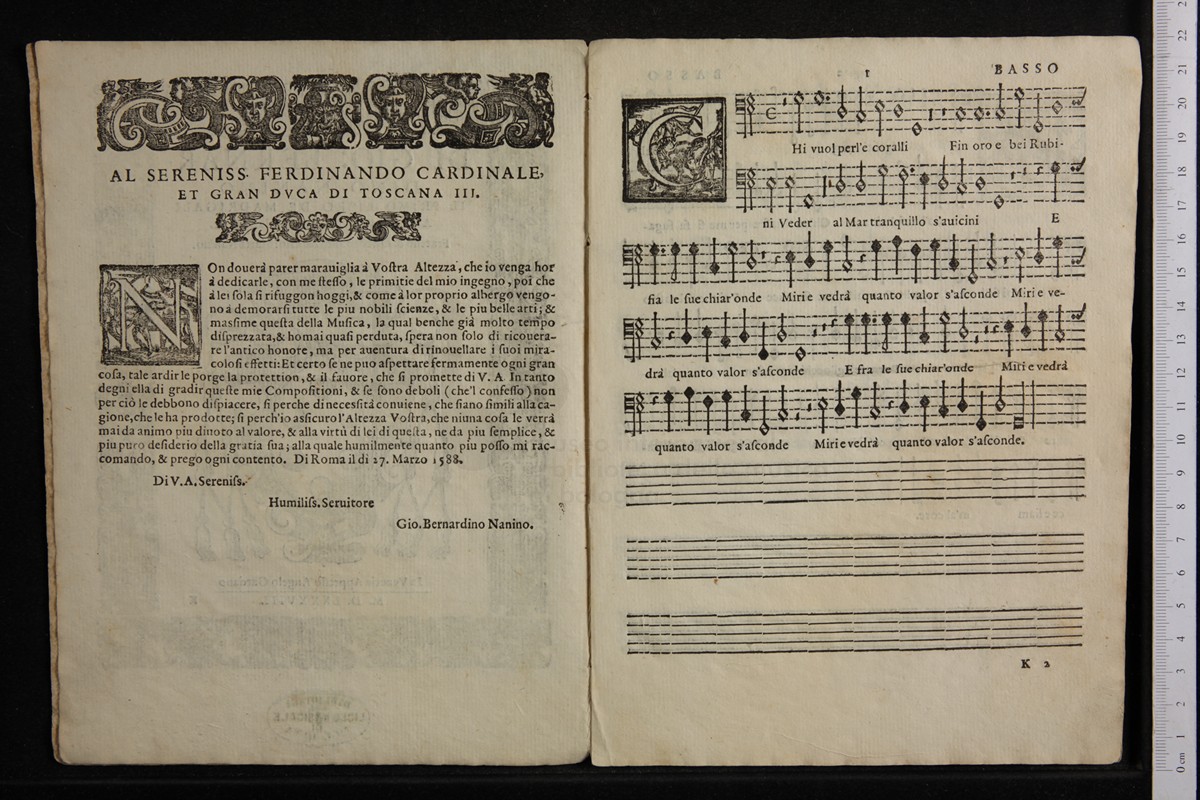 AL SERENISS. FERDINANDO CARDINALE,
ET GRAN DVCA DI TOSCANA III.
NOn douerà parer marauiglia à Voſtra Altezza, che io venga hor
à dedicarle, con me ſteſſo, le primitie del mio ingegno, poi che
à lei ſola ſi rifuggon hoggi, & come à lor proprio albergo vengo-
no à demorarſi tutte le piu nobili ſcienze, & le piu belle arti; &
maſſime queſta della Muſica, la qual benche già molto tempo
diſprezzata, & homai quaſi perduta, ſpera non ſolo di ricouera-
re l'antico honore, ma per auentura di rinouellare i ſuoi mira-
coloſi effetti: Et certo ſe ne puo aſpettare fermamente ogni gran
coſa, tale ardir le porge la protettion, & il fauore, che ſi promette di V. A. In tanto
degni ella di gradir queſte mie Compoſitioni, & ſe ſono deboli (che'l confeſſo) non
per ciò le debbono diſpiacere, ſi perche di neceſſità conuiene, che ſiano ſimili alla ca-
gione, che le ha prodotte; ſi perch'io aſſicuro l'Altezza Voſtra, che niuna coſa le verrà
mai da animo piu diuoto al valore, & alla virtù di lei di queſta, ne da piu ſemplice, &
piu puro deſiderio della gratia ſua; alla quale humilmente quanto piu poſſo mi rac-
comando, & prego ogni contento. Di Roma il dì 27. Marzo 1588.
Di V. A. Sereniſs.
Humiliſs. Seruitore
Gio. Bernardino Nanino.
1 BASSO
CHi vuol perl'e coralli Fin oro e bei Rubi-
ni Veder al Mar tranquillo s'auicini E
fia le ſue chiar'onde Miri e vedrà quanto valor s'aſconde Miri e ve-
drà quanto valor s'aſconde E fra le ſue chiar'onde Miri e vedrà
quanto valor s'aſconde Miri e vedrà quanto valor s'aſconde.
K 2
0 cm 1 2 3 4 5 6 7 8 9 10 11 12 13 14 15 16 17 18 19 20 21 22